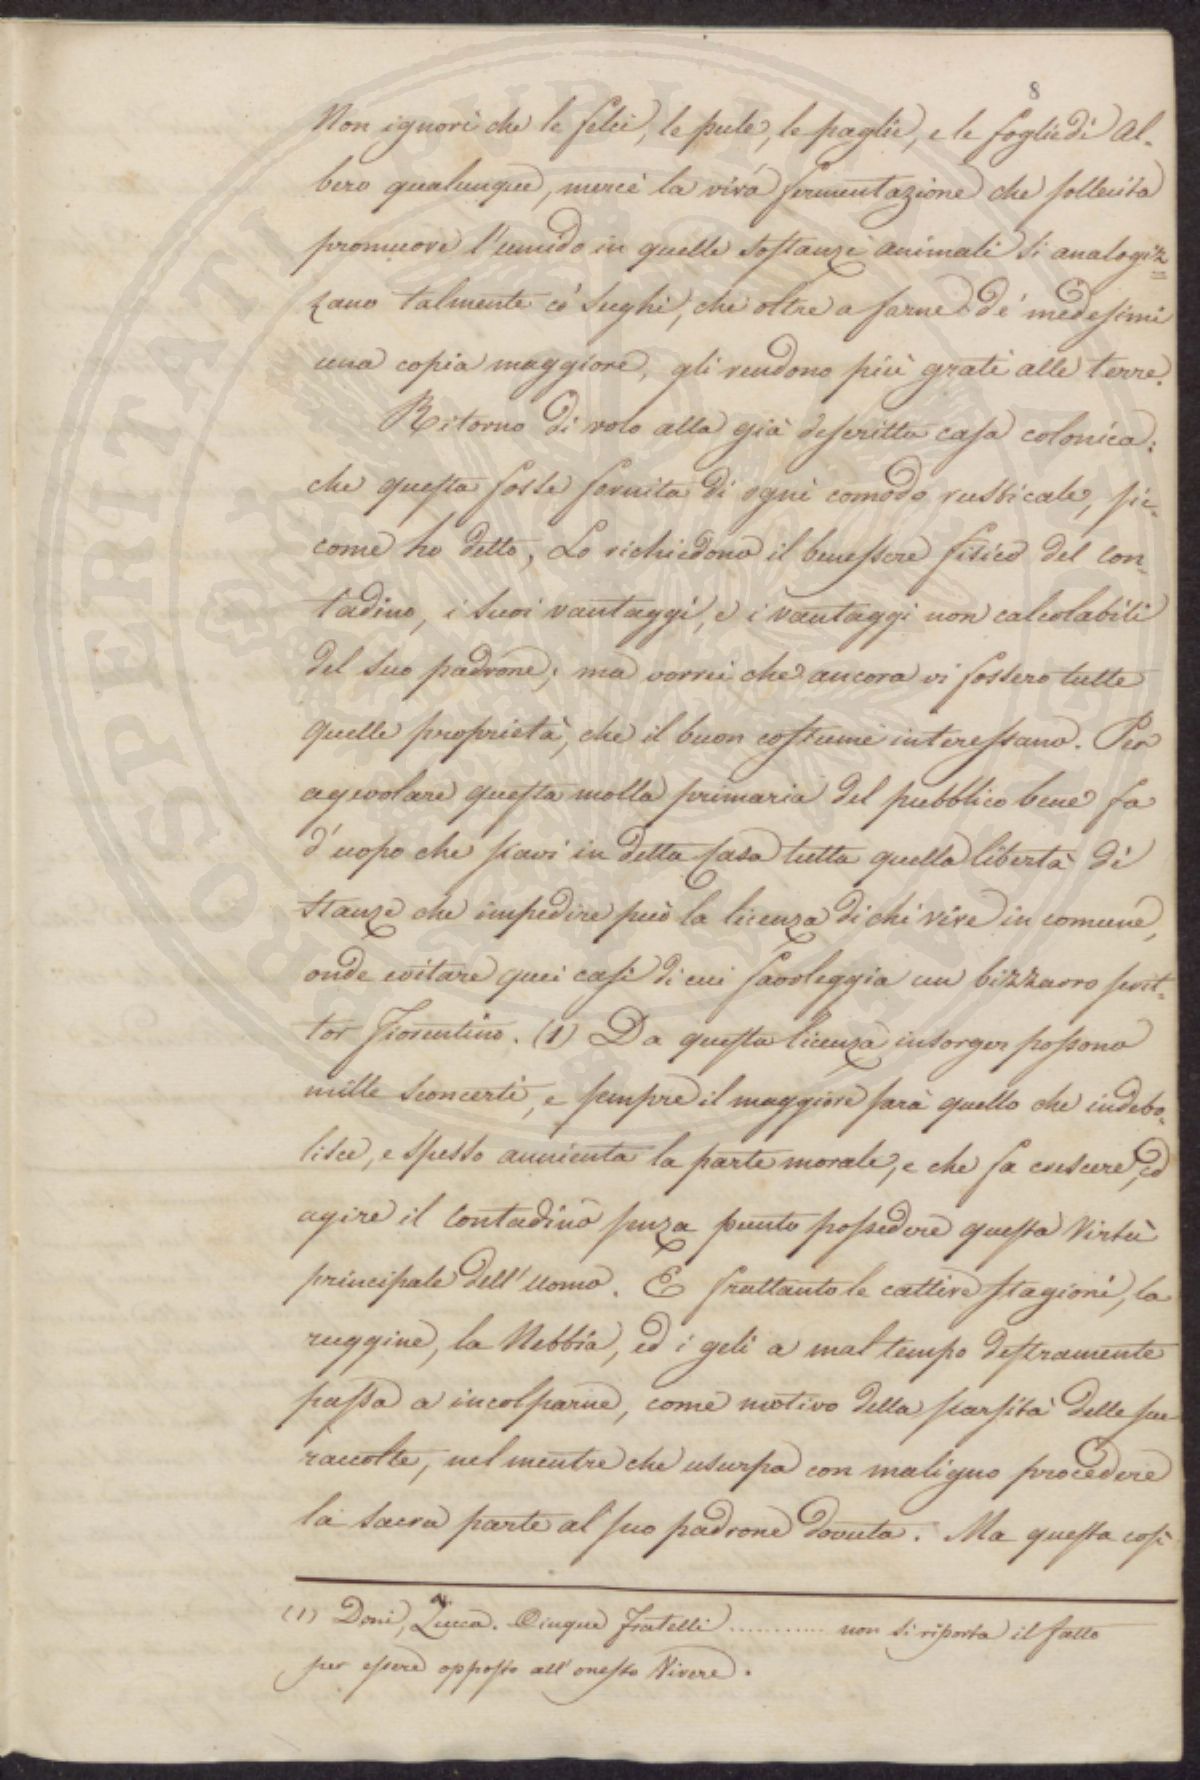 8
Non ignori che le felci, le pule, le paglie, e le foglie di Al-
bero qualunque, mercè la viva fermentazione che sollecita
promuove l'umido in quelle sostanze animali si analogiz=
zano talmente co' sughi, che oltre a farne de' medesimi
una copia maggiore, gli rendono più grati alle terre.
Ritorno di volo alla già descritta casa colonica:
che questa fosse fornita di ogni comodo rusticale, sic-
come ho detto, Lo richiedono il benessere fisico del Con-
tadino, i suoi vantaggi, e i vantaggi non calcolabili
del suo padrone; ma vorrei che ancora vi fossero tutte
quelle proprietà, che il buon costume interessano. Per
agevolare questa molla primaria del pubblico bene fa
d'uopo che siavi in detta Casa tutta quella libertà di
stanze che impedire può la licenza di chi vive in comune,
onde evitare quei casi di cui favoleggia un bizzarro scrit-
tor Fiorentino. (1) Da questa licenza insorger possono
mille sconcerti, e sempre il maggiore sarà quello che indebo-
lisce, e spesso annienta la parte morale, e che fa crescere, ed
agire il Contadino senza punto possedere questa Virtù
principale dell'Uomo. E frattanto le cattive stagioni, la
ruggine, la Nebbia, ed i geli a mal tempo destramente
passa a incolparne, come motivo della scarsità delle sue
raccolte, nel mentre che usurpa con maligno procedere
la sacra parte al suo padrone dovuta. Ma questa così
(1) Doni, Zucca. Cinque Fratelli ........... non si riporta il fatto
per essere opposto all'onesto Vivere.
PROSPERITATI PUBLICAE